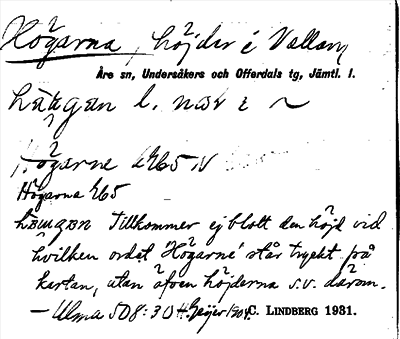 Högarna, höjder i Vallen
Åre sn, Undersåkers och Offerdals tg, Jämtl. l.
l. næt ɛ ~
Högarne ÆG5 N
Högarna ÆG5
Tillkommer ej blott den höjd vid
hvilken ordet 'Högarne' står tryckt på
kartan, utan äfven höjderna s.v. därom.
— Ulma 508:30 H. Geijer 1904. C. LINDBERG 1931.